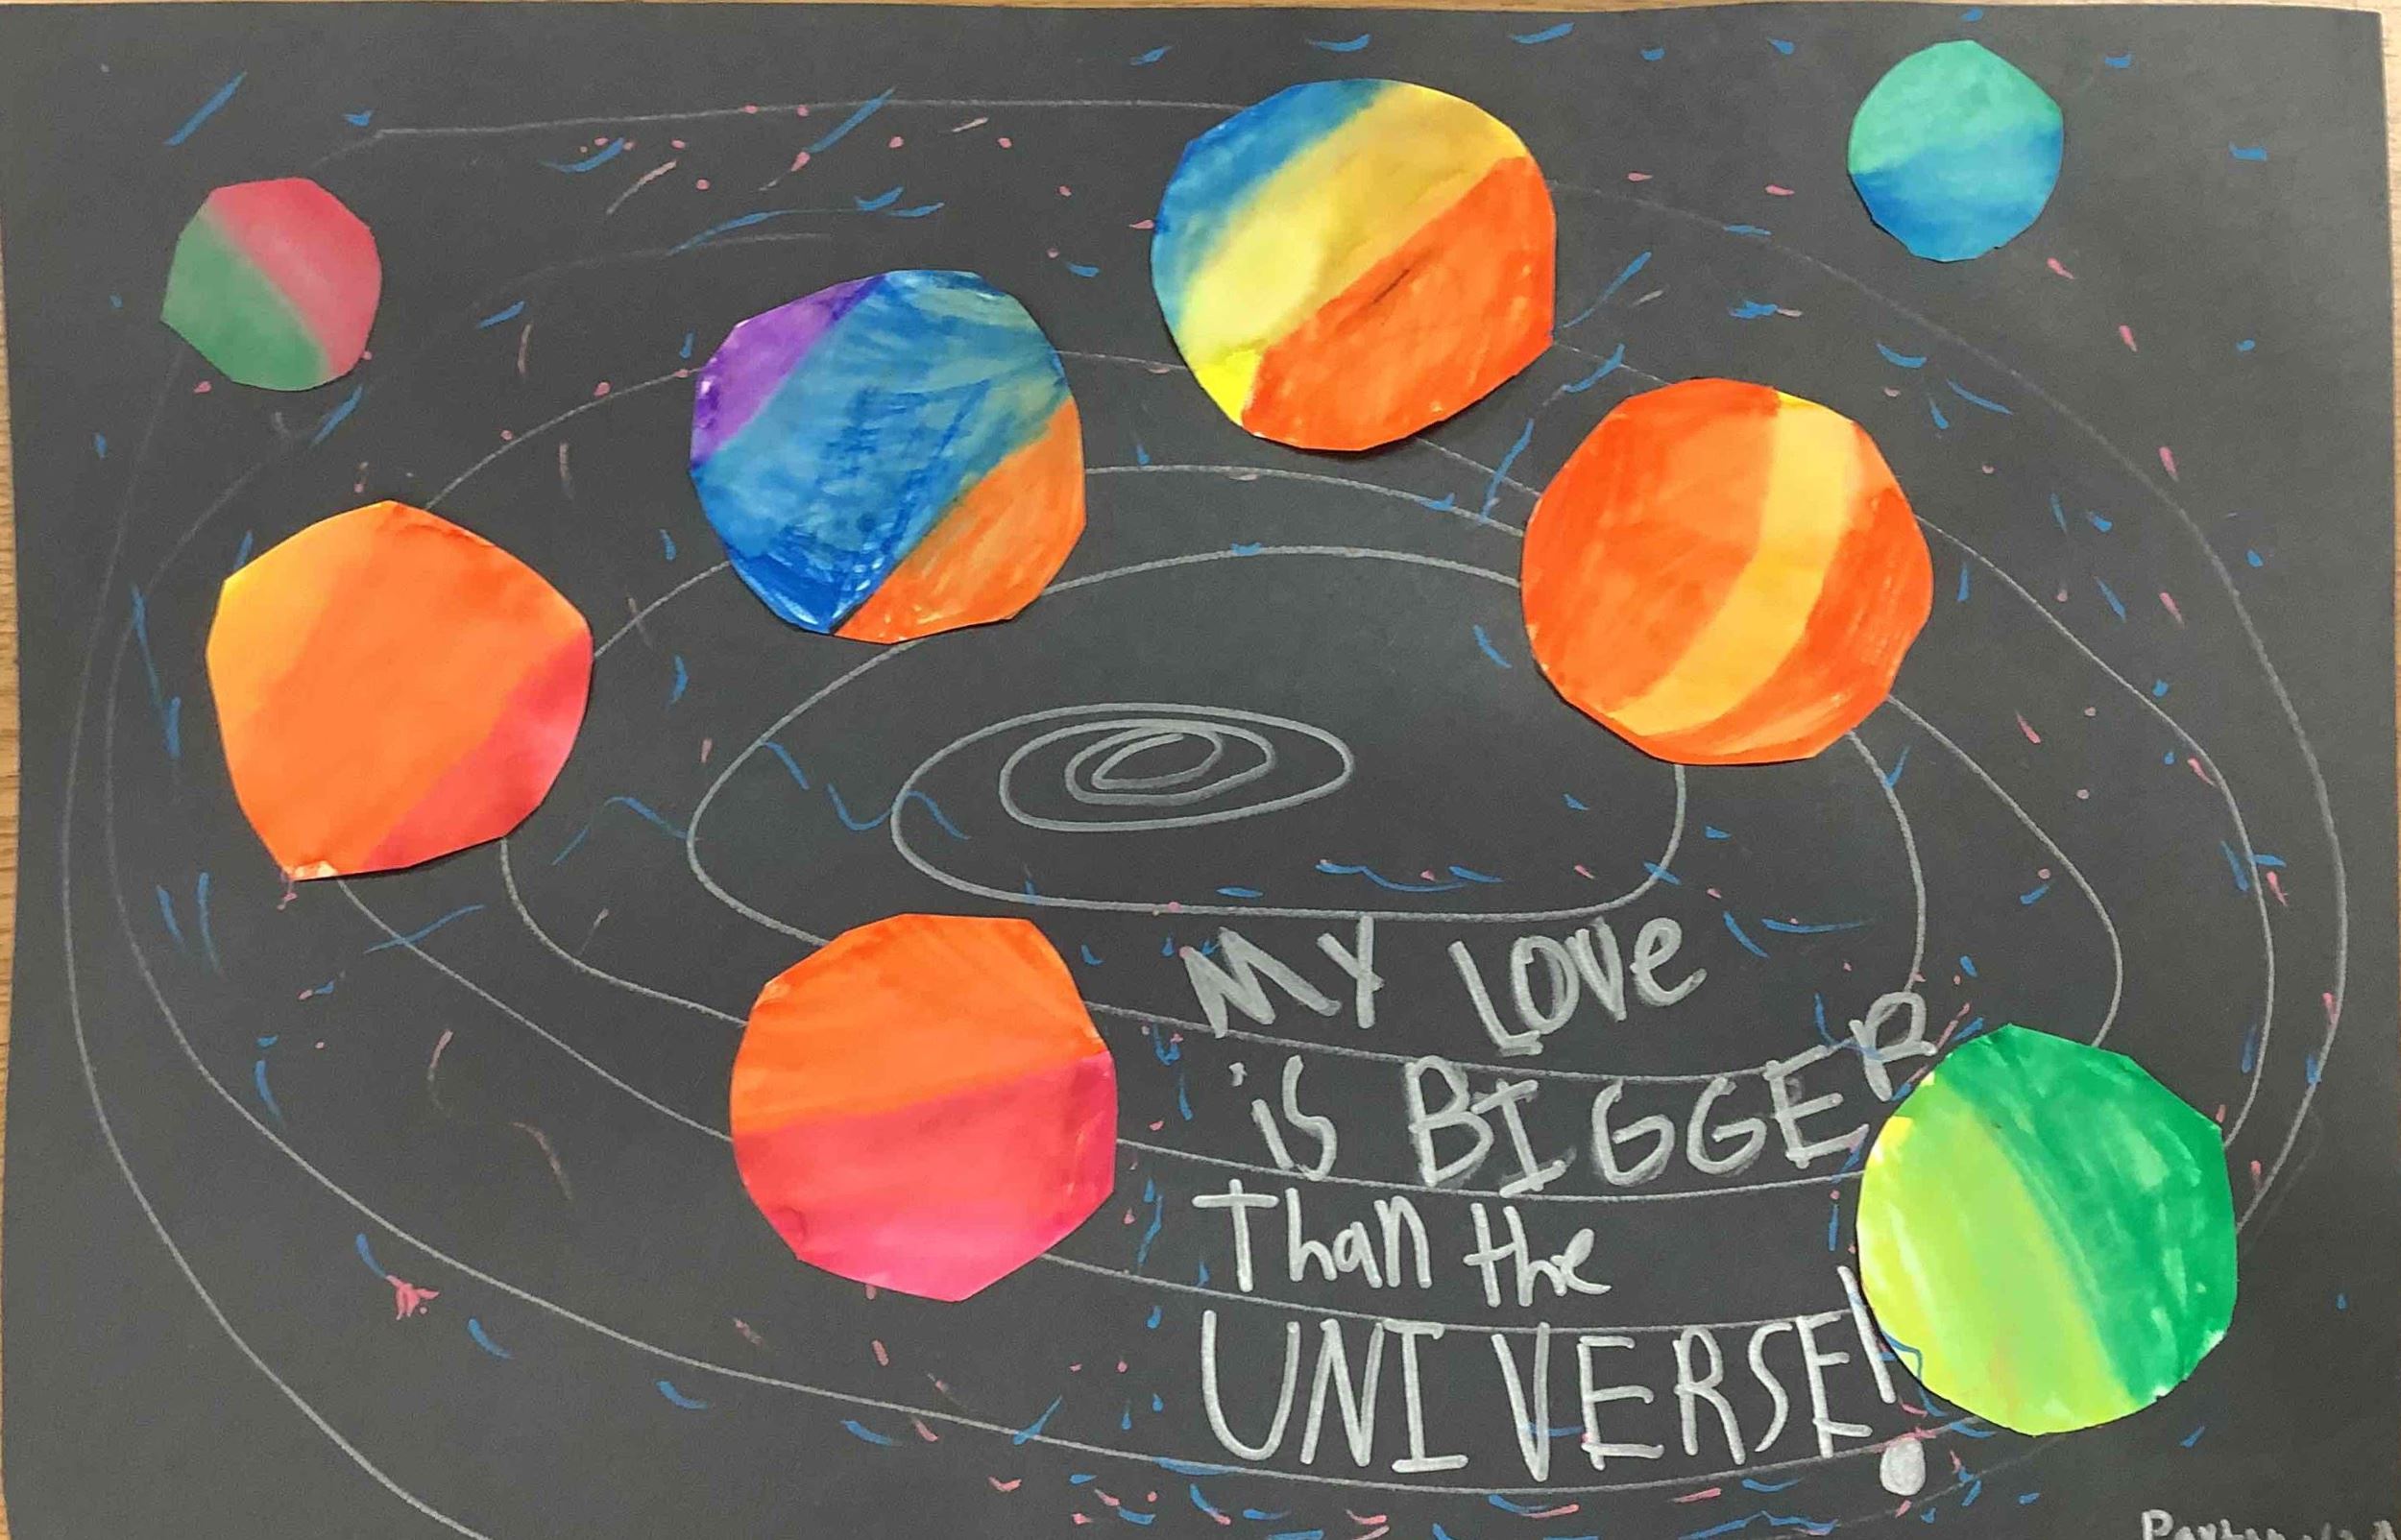 MY LOVe
is BIGGER
Than the
UNIVERSE!